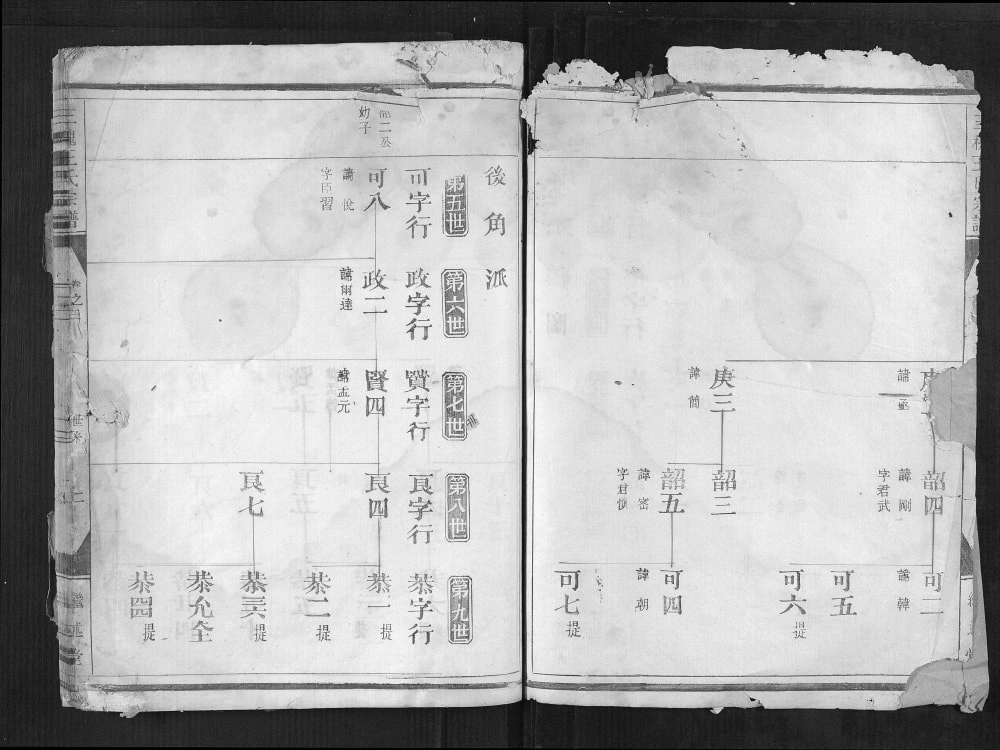 諱丞
庚三
諱簡
韶四
諱剛
字君武
韶三
韶五
諱密
字君慎
可二
諱韓
可五
可六
提
可四
諱朝
可七
提
二公
幼子
後角派
第五世
可字行
可八
諱悅
字臣習
第六世
政字行
政二
諱爾達
第七世
賢字行
賢四
諱孟元
第八世
良字行
良四
良七
第九世
恭字行
恭一
提
恭二
提
恭三六
提
恭九全
恭四
提
王氏宗譜
卷之
世系
上
繼述堂